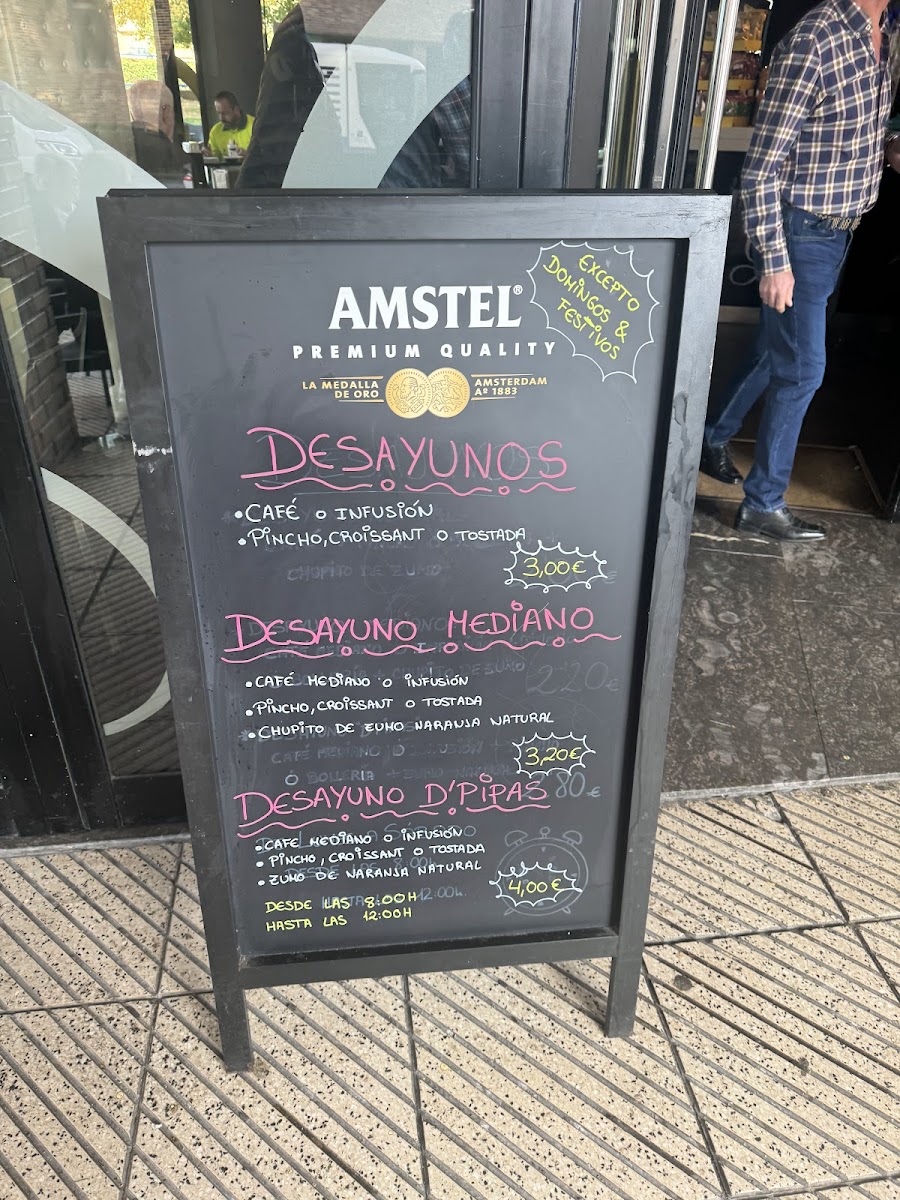 EXCEPTO
DOMINGOS &
FESTIVOS
AMSTEL®
PREMIUM QUALITY
LA MEDALLA
DE ORO
AMSTERDAM
Aº 1883
DESAYUNOS
•CAFÉ O INFUSIÓN
•PINCHO, CROISSANT O TOSTADA
CHUPITO DE ZUMO
3,00€
DESAYUNO MEDIANO
•CAFÉ MEDIANO O INFUSIÓN
•PINCHO, CROISSANT O TOSTADA
•CHUPITO DE ZUMO NARANJA NATURAL
3,20€
DESAYUNO D'PIPAS
•CAFE MEDIANO O INFUSIÓN
•PINCHO, CROISSANT O TOSTADA
•ZUMO DE NARANJA NATURAL
4,00€
DESDE LAS 8:00H
HASTA LAS 12:00H